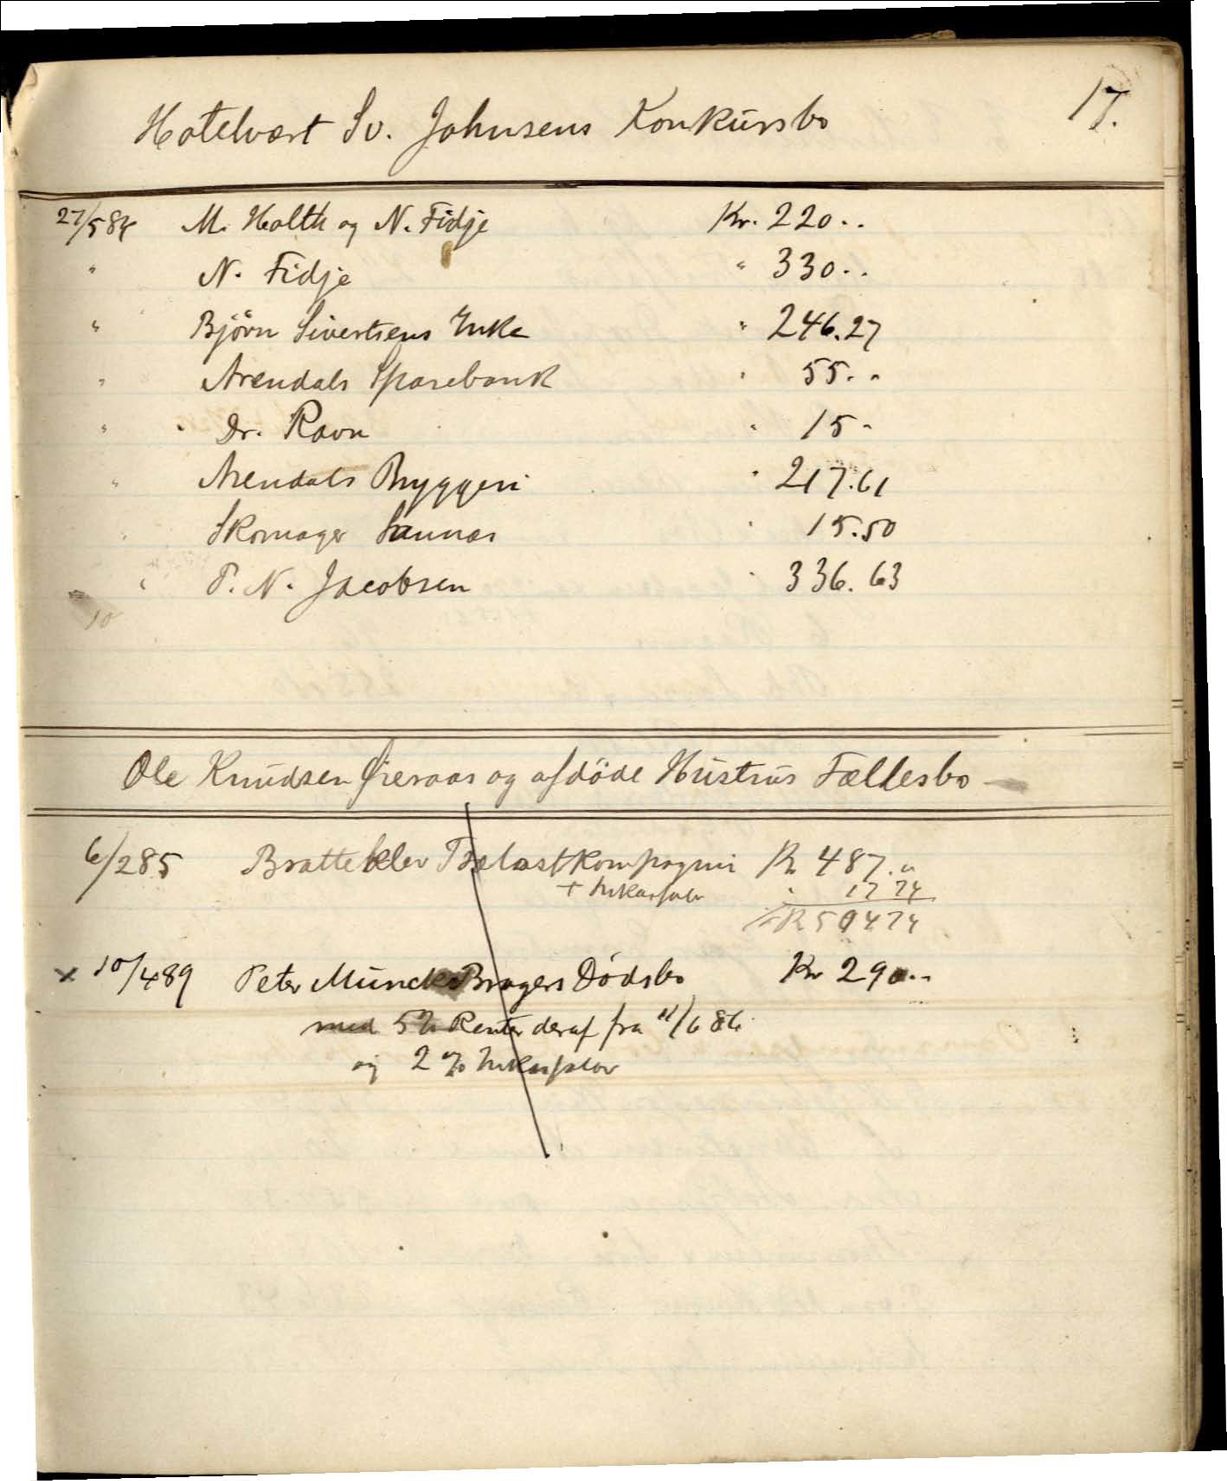 17.
Hotelvært Sv. Johnsens Konkursbo
27/5 84 M. Holth og N. Fidje Kr. 220..
" N. Fidje " 330..
" Bjørn Sivertsens Enke " 246.27
" Arendals Sparebank " 55..
" Dr. Ravn " 15-
" Arendals Bryggeri " 217.61
" Skomager Sannæs " 15.50
" P. N. Jacobsen " 336.63
10
Ole Knudsen Øieraas og afdøde Hustrus Fællesbo
6/2 85 Bratteklev Trælastkompagni Kr 487."
+ Inkassalør " 17 74
Kr 504 74
x 10/4 89 Peter Munck Bragers Dødsbo Kr 290..
med 5% Renter deraf fra 11/6 86
og 2% Inkassalør